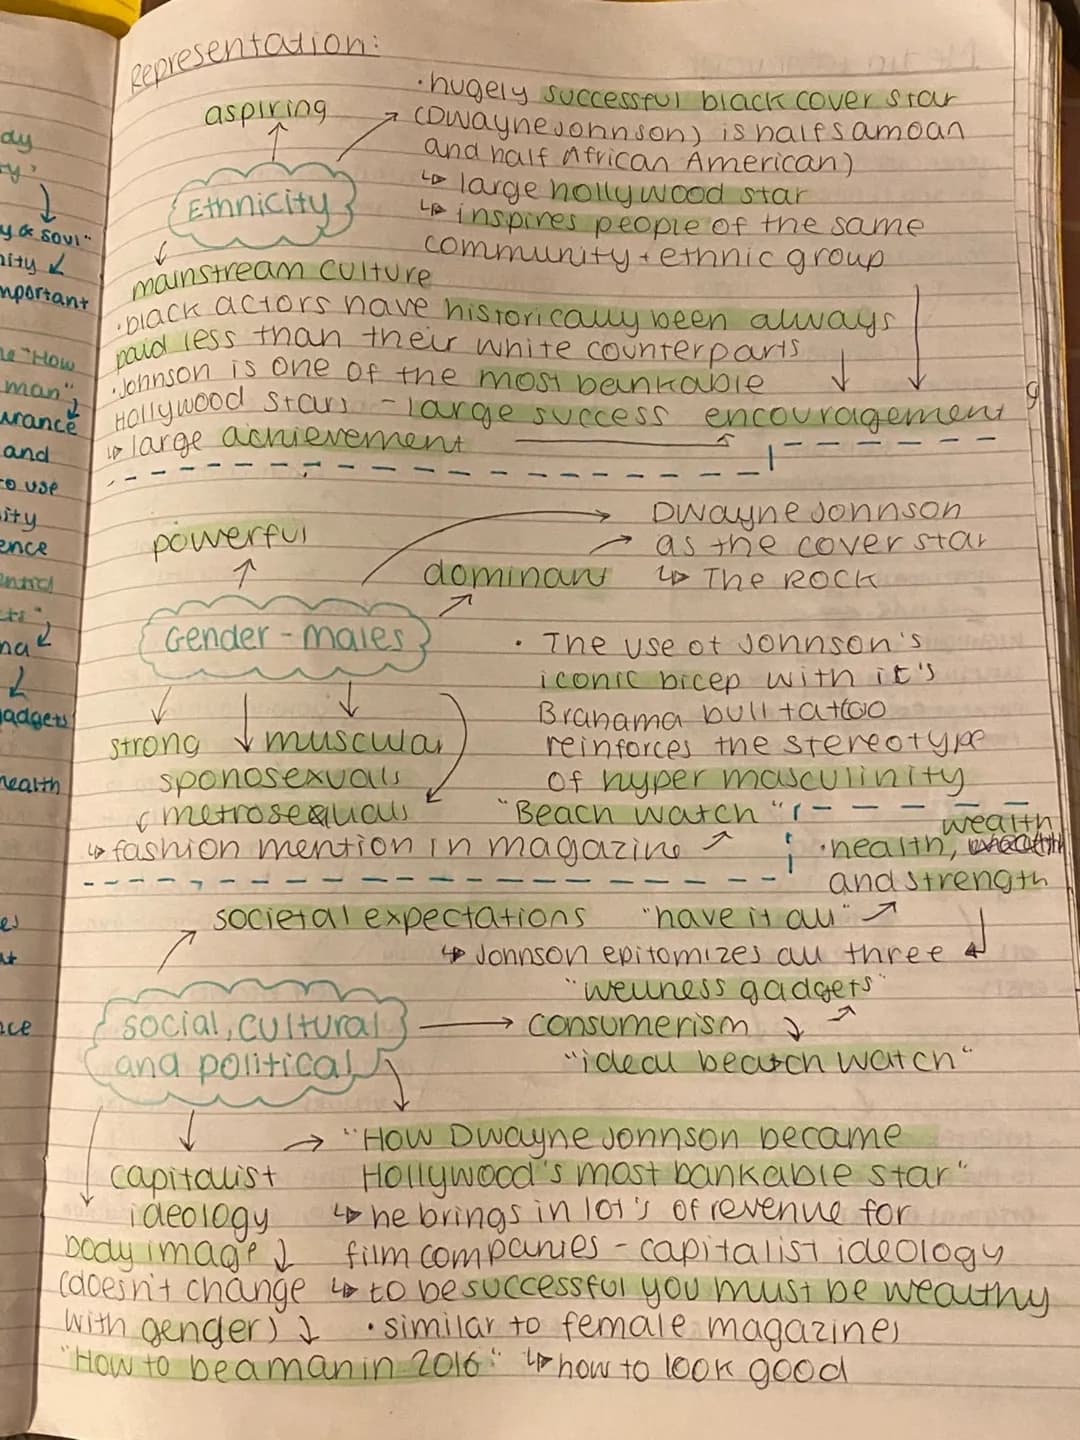 Representation:
aspiring
· hugely successful black cover star
(Dwayne Johnson) is half samoan
and half African American)
↳ large hollywood star
↳ inspires people of the same
community + ethnic group
Ethnicity
mainstream culture
· black actors have historically been always
paid less than their white counterparts
· Johnson is one of the most bankable
Hollywood stars - large success encouragement
↳ large achievement
powerful
dominant
Dwayne Johnson
as the cover star
↳ The ROCK
Gender - males
· The use of Johnson's
iconic bicep with it's
Brahama bull tattoo
reinforces the stereotype
of hyper masculinity
strong muscular
sponosexuals
metrosexuals
↳ fashion mention in magazine
"Beach watch"
wealth
· health,
and strength
societal expectations "have it all"
↳ Johnson epitomizes all three
"wellness gadgets"
social, cultural
and political
consumerism
"ideal beach watch"
capitalist
ideology
"How Dwayne Johnson became
Hollywood's most bankable star"
↳ he brings in lot's of revenue for
film companies - capitalist ideology
↳ to be successful you must be wealthy
body image
(doesn't change
with gender)
"How to be a man in 2016"
· similar to female magazines
↳ how to look good
dy
y & soul"
nity
mportant
"How
man",
urance
and
to use
ity
ence
na
gadgets
health